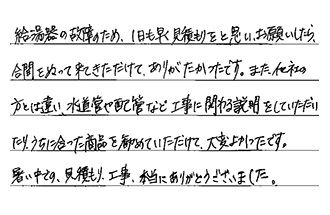 給湯器の故障のため、1日も早く見積もりをと思い、お願いしたら
合間をぬって来てきただけて、ありがたかったです。また、他社の
方とは違い、水道管や配管など工事に関わる説明をしていただい
たり、うちに合った商品を勧めていただけて、大変よかったです。
暑い中での、見積もり、工事、本当にありがとうございました。